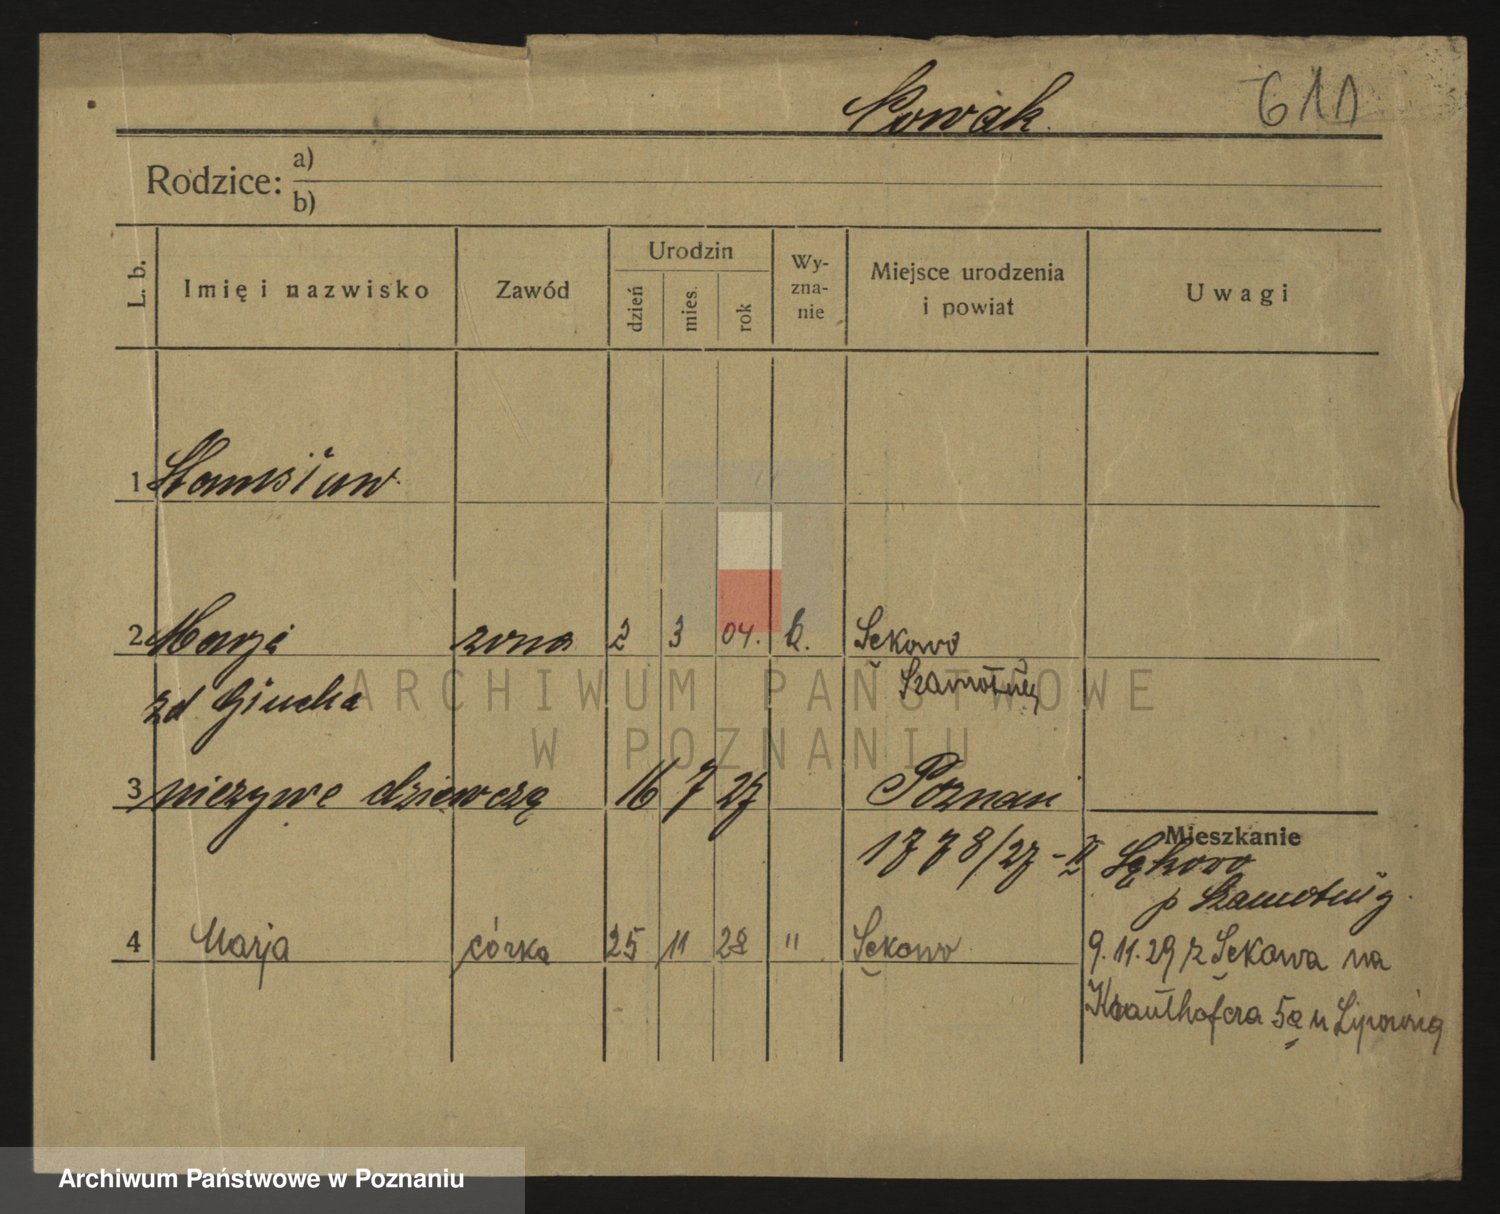 Nowak.
Rodzice: a)
b)
L. b.
Imię i nazwisko
Zawód
Urodzin
dzień
mies.
rok
Wy-
zna-
nie
Miejsce urodzenia
i powiat
Uwagi
1 Stanisław
2 Marja żona 2 3 04. k. Sękowo
Szamotuły
zd Giucha
3 nieżywe dziewczę 16 7 27 Poznań
1778/27-II
Mieszkanie
Sękowo
p Szamotuły.
4 Marja córka 25 11 28 " Sękowo
9.11.29 z Sękowa na
Krauthofera 5a u Lipowicz
ARCHIWUM PAŃSTWOWE
W POZNANIU
Archiwum Państwowe w Poznaniu